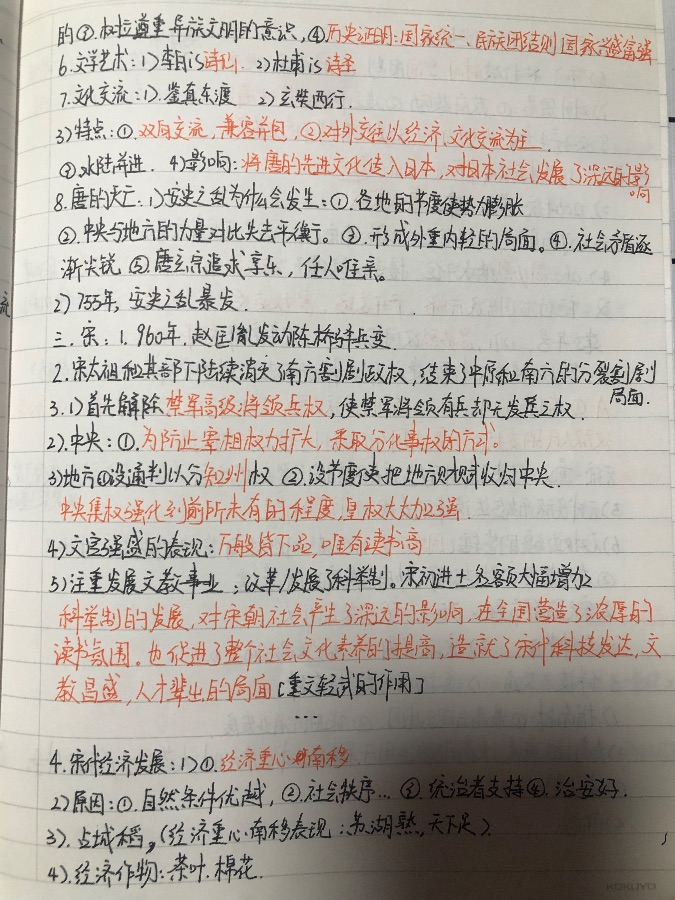 的③.树立尊重异族文明的意识,④.历史证明:国家统一、民族团结则国家兴盛富强
6.文学艺术:1)李白is诗仙. 2)杜甫is诗圣
7.文化交流:1).鉴真东渡 2)玄奘西行.
3)特点:①.双向交流,兼容并包,②.对外交往以经济、文化交流为主.
③.水陆并进. 4)影响:将唐的先进文化传入日本,对日本社会发展了深远的影响
8.唐的灭亡.1)安史之乱为什么会发生:①.各地的节度使势力膨胀
②.中央与地方的力量对比失去平衡。③.形成外重内轻的局面。④.社会矛盾逐
渐尖锐 ⑤.唐玄宗追求享乐,任人唯亲。
2)755年,安史之乱暴发.
流
三.宋:1.960年,赵匡胤发动陈桥兵变.
2.宋太祖和其部下陆续消灭了南方割剧政权,结束了中原和南方的分裂割剧局面.
3.1)首先解除禁军高级将领兵权,使禁军将领有兵却无发兵之权.
2).中央:①.为防止宰相权力扩大,采取分化事权的方式。
3)地方①设通判以分知州权 ②.设节度使把地方财赋收归中央.
中央集权强化到前所未有的程度,皇权大大加强.
4)文官强盛的表现:万般皆下品,唯有读书高
5)注重发展文教事业:改革/发展了科举制。宋初进士名额大幅增加
科举制的发展,对宋朝社会产生了深远的影响,在全国营造了浓厚的
读书氛围。也促进了整个社会文化素养的提高,造就了宋代科技发达,文
教昌盛,人才辈出的局面[重文轻武的作用]
...
4.宋代经济发展:1)①.经济重心南移
2)原因:①.自然条件优越,②.社会秩序... ③.统治者支持④.治安好.
3).占城稻,(经济重心南移表现:苏湖熟,天下足).
4).经济作物:茶叶.棉花.
KOKUYO